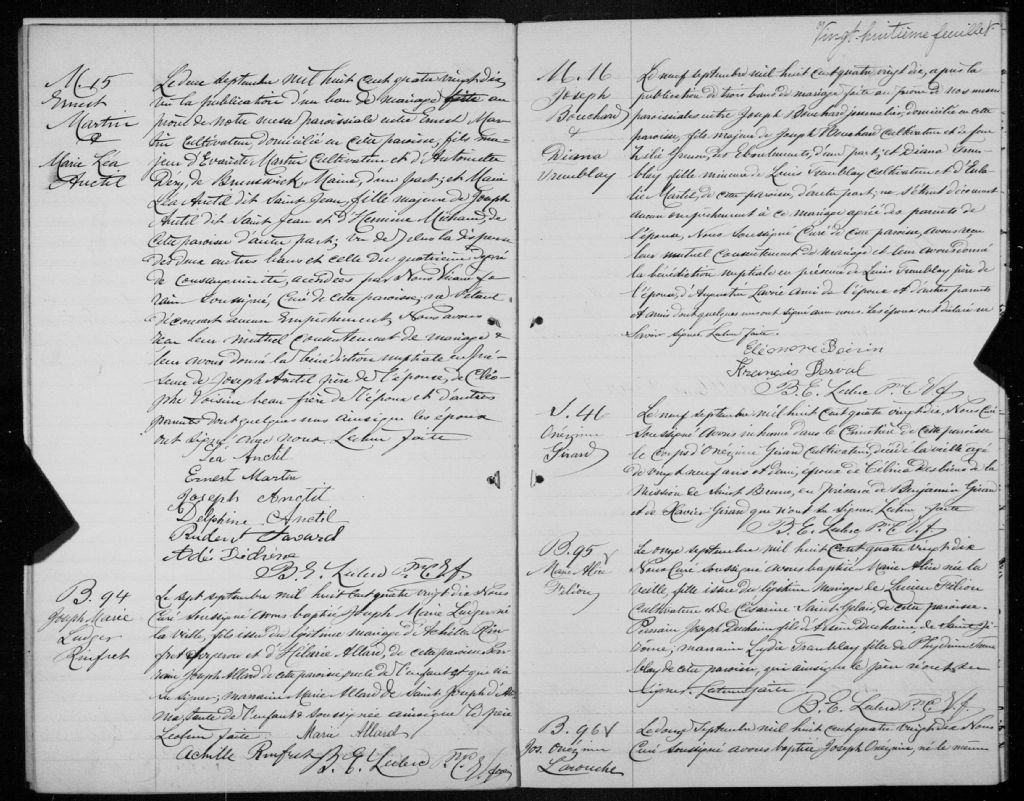 M. 15
Ernest
Martin
&
Marie Léa
Anctil
Le deux septembre mil huit cent quatre vingt dix,
vu la publication d'un ban de mariage faite au
prone de notre messe paroissiale entre Ernest Mar-
tin Cultivateur, domicilié en cette paroisse, fils ma-
jeur d'Evariste Martin Cultivateur et d'Antoinette
Déry, de Brunswick, Maine, d'une part; et Marie
Léa Anctil dit Saint Jean, fille majeure de Joseph
Anctil dit Saint Jean et d'Hermine Michaud, de
cette paroisse d'autre part; vu de plus la dispense
des deux autres bans et celle du quatrième degré
de consanguinité, accordées par
soussigné, Curé de cette paroisse, ne s'étant
découvert aucun empêchement, Nous avons
reçu leur mutuel consentement de mariage &
leur avons donné la bénédiction nuptiale en pré-
sence de Joseph Anctil père de l'épouse, de Cléo-
phe Voisine beau-frère de l'époux et d'autres
parents dont quelques uns ainsi que les époux
ont signé avec nous. Lecture faite
Léa Anctil
Ernest Martin
Joseph Anctil
Delphine Anctil
Savard
B. E. Leclerc Ptre C. V. f.
B. 94
Joseph Marie
Ludger
Rinfret
Le sept septembre mil huit cent quatre vingt dix Nous
Curé soussigné avons baptisé Joseph Marie Ludger né
la veille, fils issu du légitime mariage de Achille Rin-
fret forgeron et d'Hilarie Allard, de cette paroisse Par-
rain Joseph Allard de cette paroisse oncle de l'enfant qui n'a
su signer; marraine Marie Allard de Saint Joseph
tante de l'enfant soussignée ainsi que le père
Lecture faite. Marie Allard
Achille Rinfret B. E. Leclerc Ptre
Vingt-huitième feuillet
M. 16
Joseph
Bouchard
&
Diana
Tremblay
Le neuf septembre mil huit cent quatre vingt dix, après la
publication de trois bans de mariage faite au prone de nos messes
paroissiales entre Joseph Bouchard journalier, domicilié en cette
paroisse, fils majeur de Joseph Bouchard Cultivateur et de feue
Zélie Grenon, des Eboulements, d'une part; et Diana Trem-
blay fille mineure de Louis Tremblay cultivateur et d'Eula-
lie Martel, de cette paroisse, d'autre part; ne s'étant découvert
aucun empêchement à ce mariage agréé des parents de
l'épouse, Nous Soussigné Curé de cette paroisse, avons reçu
leur mutuel consentement de mariage et leur avons donné
la bénédiction nuptiale en présence de Louis Tremblay père de
l'épouse, d'Augustin Lavoie ami de l'époux et d'autres parents
et amis dont quelques uns ont signé avec nous. Les époux ont déclaré ne
savoir signer. Lecture faite.
Eléonore Boivin
Francis Dorval
B. E. Leclerc Ptre C. V. f.
S. 46
Onézime
Girard
Le neuf septembre mil huit cent quatre vingt dix, Nous Curé
Soussigné avons inhumé dans le Cimetière de cette paroisse
le corps d'Onézime Girard Cultivateur, décédé la veille agé
de vingt neuf ans et demi, époux de Célina Desbiens de la
mission de Saint Bruno, en présence de Benjamin Girard
et de Xavier Girard qui n'ont su signer. Lecture faite
B. E. Leclerc Ptre C. V. f.
B. 95
Marie Alice
Filion
Le onze septembre mil huit cent quatre vingt dix
Nous Curé soussigné avons baptisé Marie Alice née la
veille, fille issue du légitime mariage de Lucien Filion
Cultivateur et de Césarine Saint Gelais de cette paroisse.
Parrain Joseph Duchaine fils d'Arsène Duchaine de Saint Jé-
rome; marraine Lydia Tremblay fille de Phydime Trem-
blay de cette paroisse, qui ainsi que le père n'ont su
signer. Lecture faite
B. E. Leclerc Ptre C. V. f.
B. 96
Jos. Onézime
Larouche
Le douze Septembre mil huit cent quatre vingt dix Nous
Curé soussigné avons baptisé Joseph Onézime, né le même